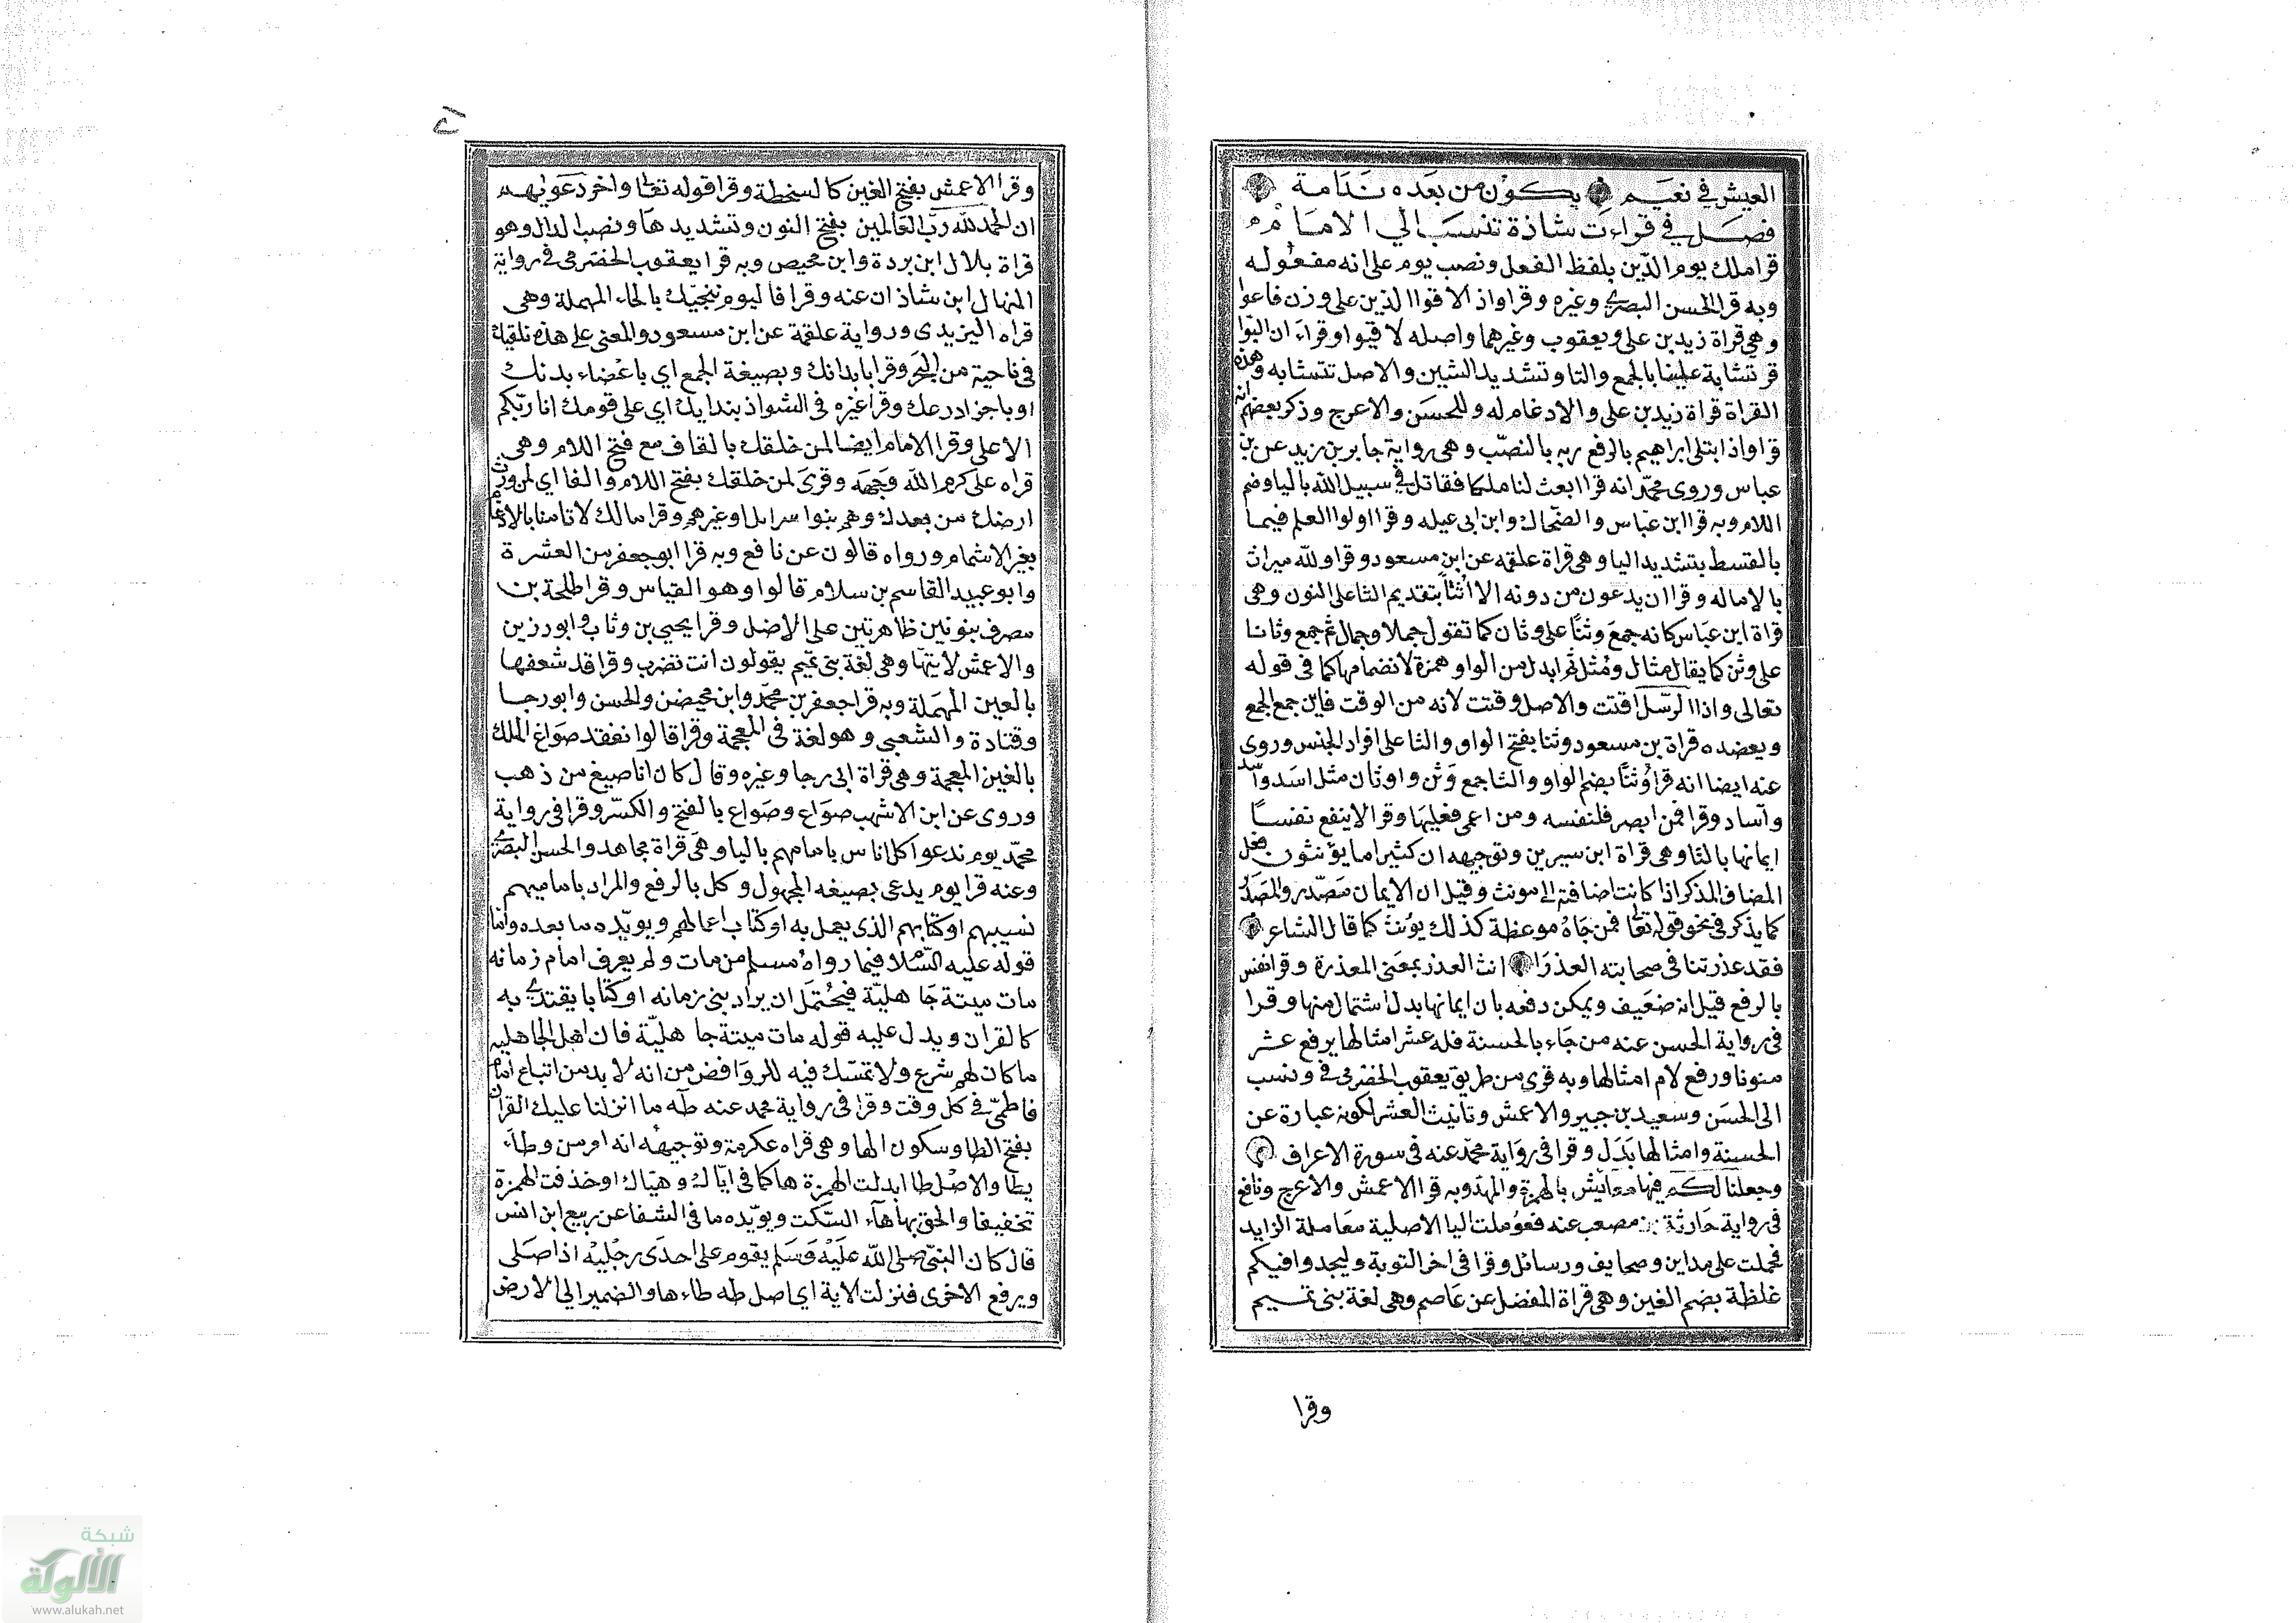 العيش في نعيم يكون من بعده ندامة
فصل في قراءت شاذة تنسب الي الامام
قرا ملك يوم الدين بلفظ الفعل ونصب يوم على انه مفعوله
وبه قرا الحسن البصري وغيره وقرا واذ الاقوا الذين على وزن فاعوا
وهي قراة زيد بن على ويعقوب وغيرهما واصله لاقيوا وقراء ان البوا
قر تشابة علينا بالجمع والتا وتشديد الشين والاصل تتشابه وهذه
القراة قراة زيد بن على والادغام له وللحسن والاعرج وذكر بعضهم انه
قرا واذ ابتلى ابراهيم بالرفع ربه بالنصب وهى رواية جابر بن زيد عن بن
عباس وروى محمد انه قرا ابعث لنا ملكا فقاتل في سبيل الله باليا وضم
اللام وبه قرا ابن عباس والضحاك وابن ابى عيله وقرا اولوا العلم فيما
بالقسط بتشديد اليا وهى قراة علقه عن ابن مسعود وقرا ولله ميراث
بالاماله وقرا ان يدعون من دونه الا اثنا بتقديم الثا على النون وهى
قراة ابن عباس كانه جمع وثنا على وثان كما تقول جملا وجمال ثم جمع وثانا
على وثن كما يقال مثال ومثل ثم ابدل من الواو همزة لانضمامها كما فى قوله
تعالى واذا الرسل اقتت والاصل وقتت لانه من الوقت فاين جمع الجمع
ويعضده قراة بن مسعود وثنا بفتح الواو والثا على افراد الجنس وروى
عنه ايضا انه قرا وثنا بضم الواو والثا جمع وثن واوثان مثل اسد واسد
وآساد وقرا فمن ابصر فلنفسه ومن اعمى فعليها وقرا لا ينفع نفسا
ايمانها بالتا وهى قراة ابن سيرين وتوجيهه ان كثيرا ما يؤنثون فعل
المضاف المذكر اذا كانت اضافته الى مونث وقيل ان الايمان مصدر والمصدر
كما يذكر فى نحو قوله تعا فمن جاه موعظة كذلك يؤنث كما قال الشاعر
فقد عذرتنا فى صحابته العذرا انث العذر بمعنى المعذرة وقرا نفس
بالرفع قيل انه ضعيف ويمكن دفعه بان ايمانها بدل اشتمال منها وقرا
فى رواية الحسن عنه من جاء بالحسنة فله عشر امثالها برفع عشر
منونا ورفع لام امثالها وبه قرى من طريق يعقوب الحضرمى فى ونسب
الى الحسن وسعيد بن جبير والاعمش وتانيث العشر لكونه عبارة عن
الحسنة وامثالها بدل وقرا فى رواية محمد عنه فى سورة الاعراف
وجعلنا لكم فيها معائيش بالهمزة والمد وبه قرا الاعمش والاعرج ونافع
فى رواية حارثة بن مصعب عنه فعوملت اليا الاصلية معاملة الزايد
فحملت على مداين وصحايف ورسائل وقرا فى اخر التوبة وليجدوا فيكم
غلظة بضم الغين وهى قراة المفضل عن عاصم وهى لغة بنى تميم
وقرا
وقرا الاعمش بفتح الغين كالسخطة وقرا قوله تعا واخر دعويهم
ان الحمد لله رب العالمين بفتح النون وتشديدها ونصب الدال وهو
قراة بلال ابن بردة وابن محيص وبه قرا يعقوب الحضرمى فى رواية
المنهال ابن شاذان عنه وقرا فاليوم ننجيك بالحاء المهملة وهى
قراه اليزيدى ورواية علقمة عن ابن مسعود والمعنى على هذه نلقيك
فى ناحية من البحر وقرا بابدانك وبصيغة الجمع اي باعضاء بدنك
او باجزا درعك وقرا غيره فى الشواذ بندايك اي على قومك انا ربكم
الاعلى وقرا الامام ايضا لمن خلقك بالقاف مع فتح اللام وهى
قراه على كرم الله وجهه وقرى لمن خلقك بفتح اللام والفا اي لمن ورث
ارضك من بعدك وهم بنوا سرايل او غيرهم وقرا مالك لا تامنا بالادغام
بغير الاشمام ورواه قالون عن نافع وبه قرا ابو جعفر من العشرة
وابو عبيد القاسم بن سلام قالوا وهو القياس وقرا طلحة بن
مصرف بنونين ظاهرتين على الاصل وقرا يحيى بن وثاب وابو رزين
والاعمش لا يتها وهى لغة بنى تميم يقولون انت تضرب وقرا قد شعفها
بالعين المهملة وبه قرا جعفر بن محمد وابن محيضن والحسن وابو رجا
وقتادة والشعبى وهو لغة فى المعجمة وقرا قالوا نفقد صواغ الملك
بالغين المعجمة وهى قراة ابى رجا وغيره وقال كان اناصيغ من ذهب
وروى عن ابن الاشهب صواع وصواع بالفتح والكسر وقرا فى رواية
محمد يوم ندعوا كل اناس بامامهم باليا وهى قراة مجاهد والحسن البصرى
وعنه قرا يوم يدعى بصيغه المجهول وكل بالرفع والمراد باماميهم
نسيبهم او كتابهم الذى يعمل به او كتاب اعمالهم ويويده ما بعده واما
قوله عليه السلام فيما رواه مسلم من مات ولم يعرف امام زمانه
مات ميتة جاهلية فيحتمل ان يراد بنى زمانه او كتابا يقتدي به
كالقران ويدل عليه قوله مات ميتة جاهلية فان اهل الجاهليه
ما كان لهم شرع ولا تمسك فيه للروافض من انه لا بد من اتباع امام
فاطمى فى كل وقت وقرا فى رواية محمد عنه طه ما انزلنا عليك القران
بفتح الطا وسكون الها وهى قراه عكرمة وتوجيهه انه او من وطاء
يطا والاصل طا ابدلت الهمزة ها كما فى اياك وهياك او حذفت الهمزة
تخفيفا والحق بها هآء السكت ويويده ما فى الشفا عن ربيع ابن انس
قال كان النبى صلى الله عليه وسلم يقوم على احدى رجليه اذا صلى
ويرفع الاخرى فنزلت الاية اي اصل طه طاءها والضمير الى الارض
شبكة
الألوكة
www.alukah.net